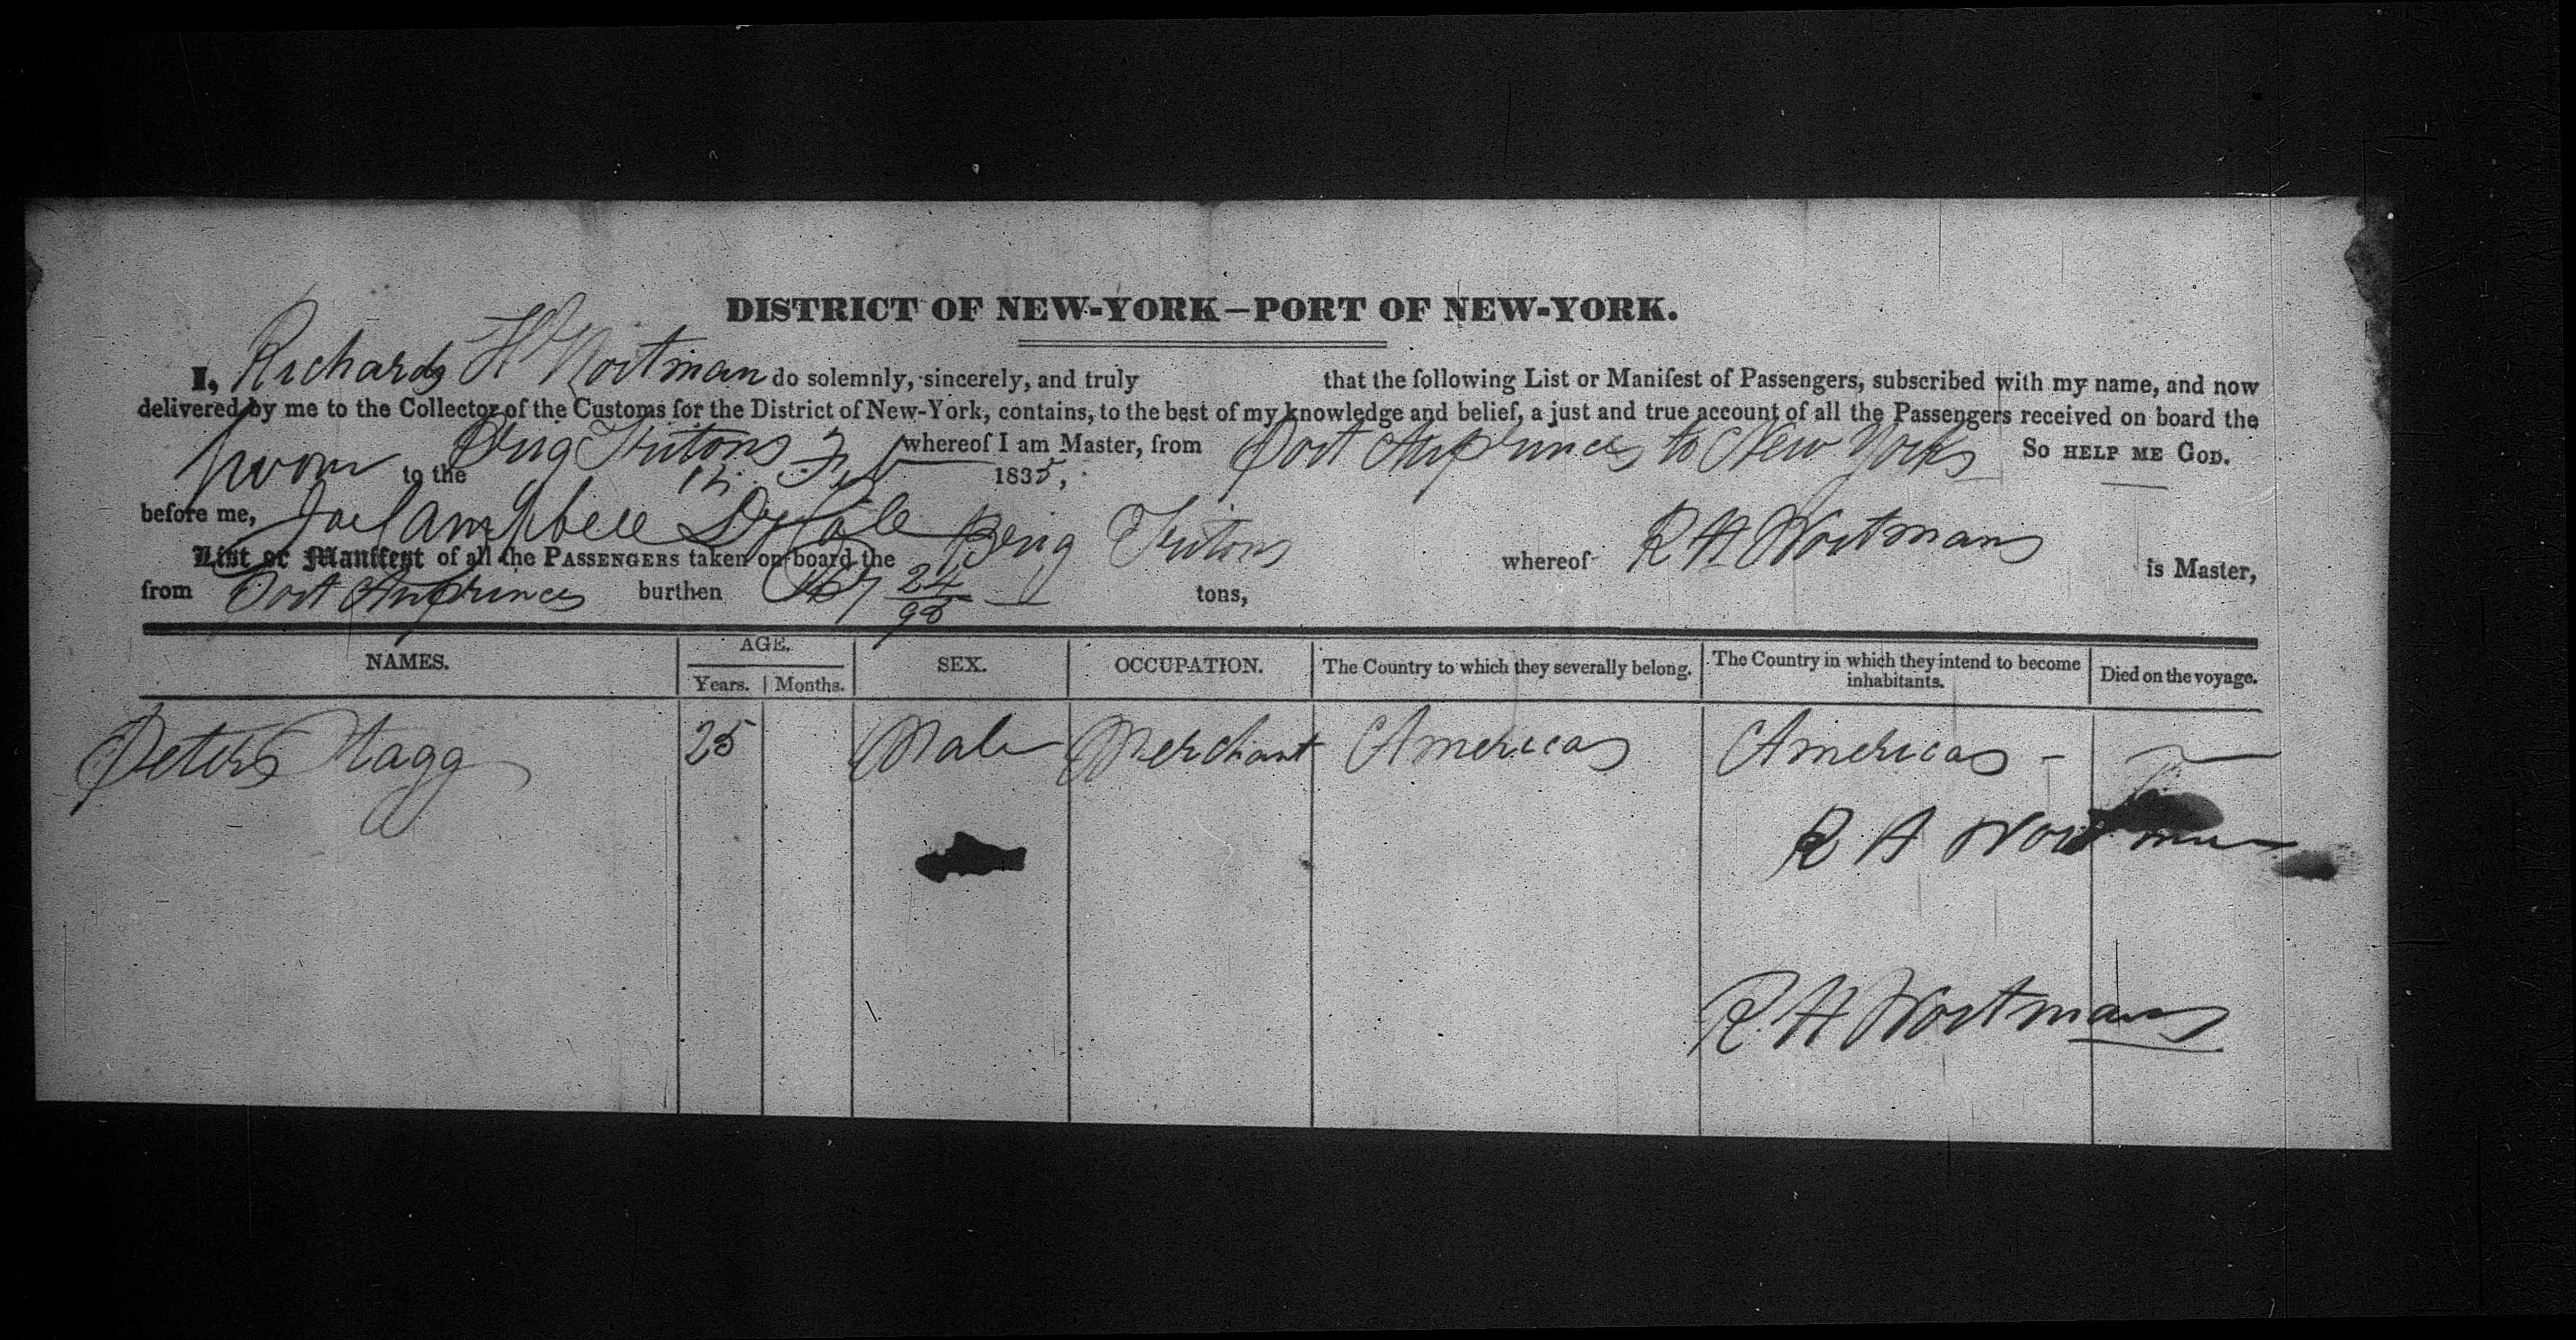 DISTRICT OF NEW-YORK—PORT OF NEW-YORK.
I, Richard H Wortman do solemnly, sincerely, and truly that the following List or Manifest of Passengers, subscribed with my name, and now
delivered by me to the Collector of the Customs for the District of New-York, contains, to the best of my knowledge and belief, a just and true account of all the Passengers received on board the
Brig Triton whereof I am Master, from Port Auprince to New York So HELP ME GOD.
Sworn to the 12 Feb 1835,
before me, Campbell Dy Col
List or Manifest of all the PASSENGERS taken on board the Brig Triton whereof R H Wortman is Master,
from Port Auprince burthen 167 24/95 tons,
NAMES. AGE. Years. Months. SEX. OCCUPATION. The Country to which they severally belong. The Country in which they intend to become inhabitants. Died on the voyage.
Peter Stagg 25 Male Merchant America America -
R H Wortman
R. H Wortman